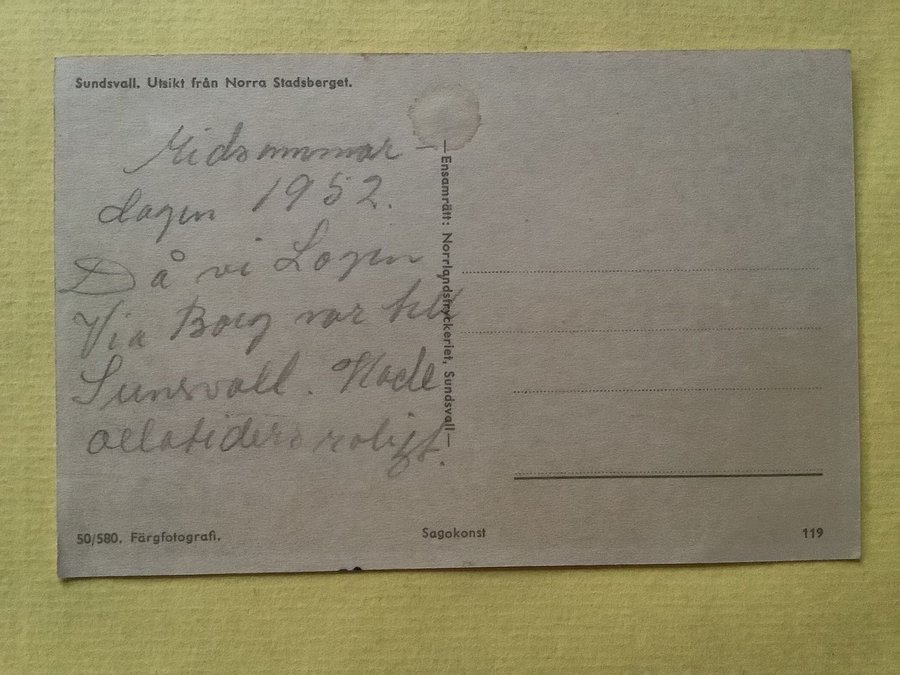 Sundsvall. Utsikt från Norra Stadsberget.
Midsommar-
dagen 1952.
Då vi Logen
Via Borg var till
Sunsvall. Hade
allatiders roligt.
—Ensamrätt: Norrlandstryckeriet, Sundsvall—
50/580. Färgfotografi.
Sagokonst
119